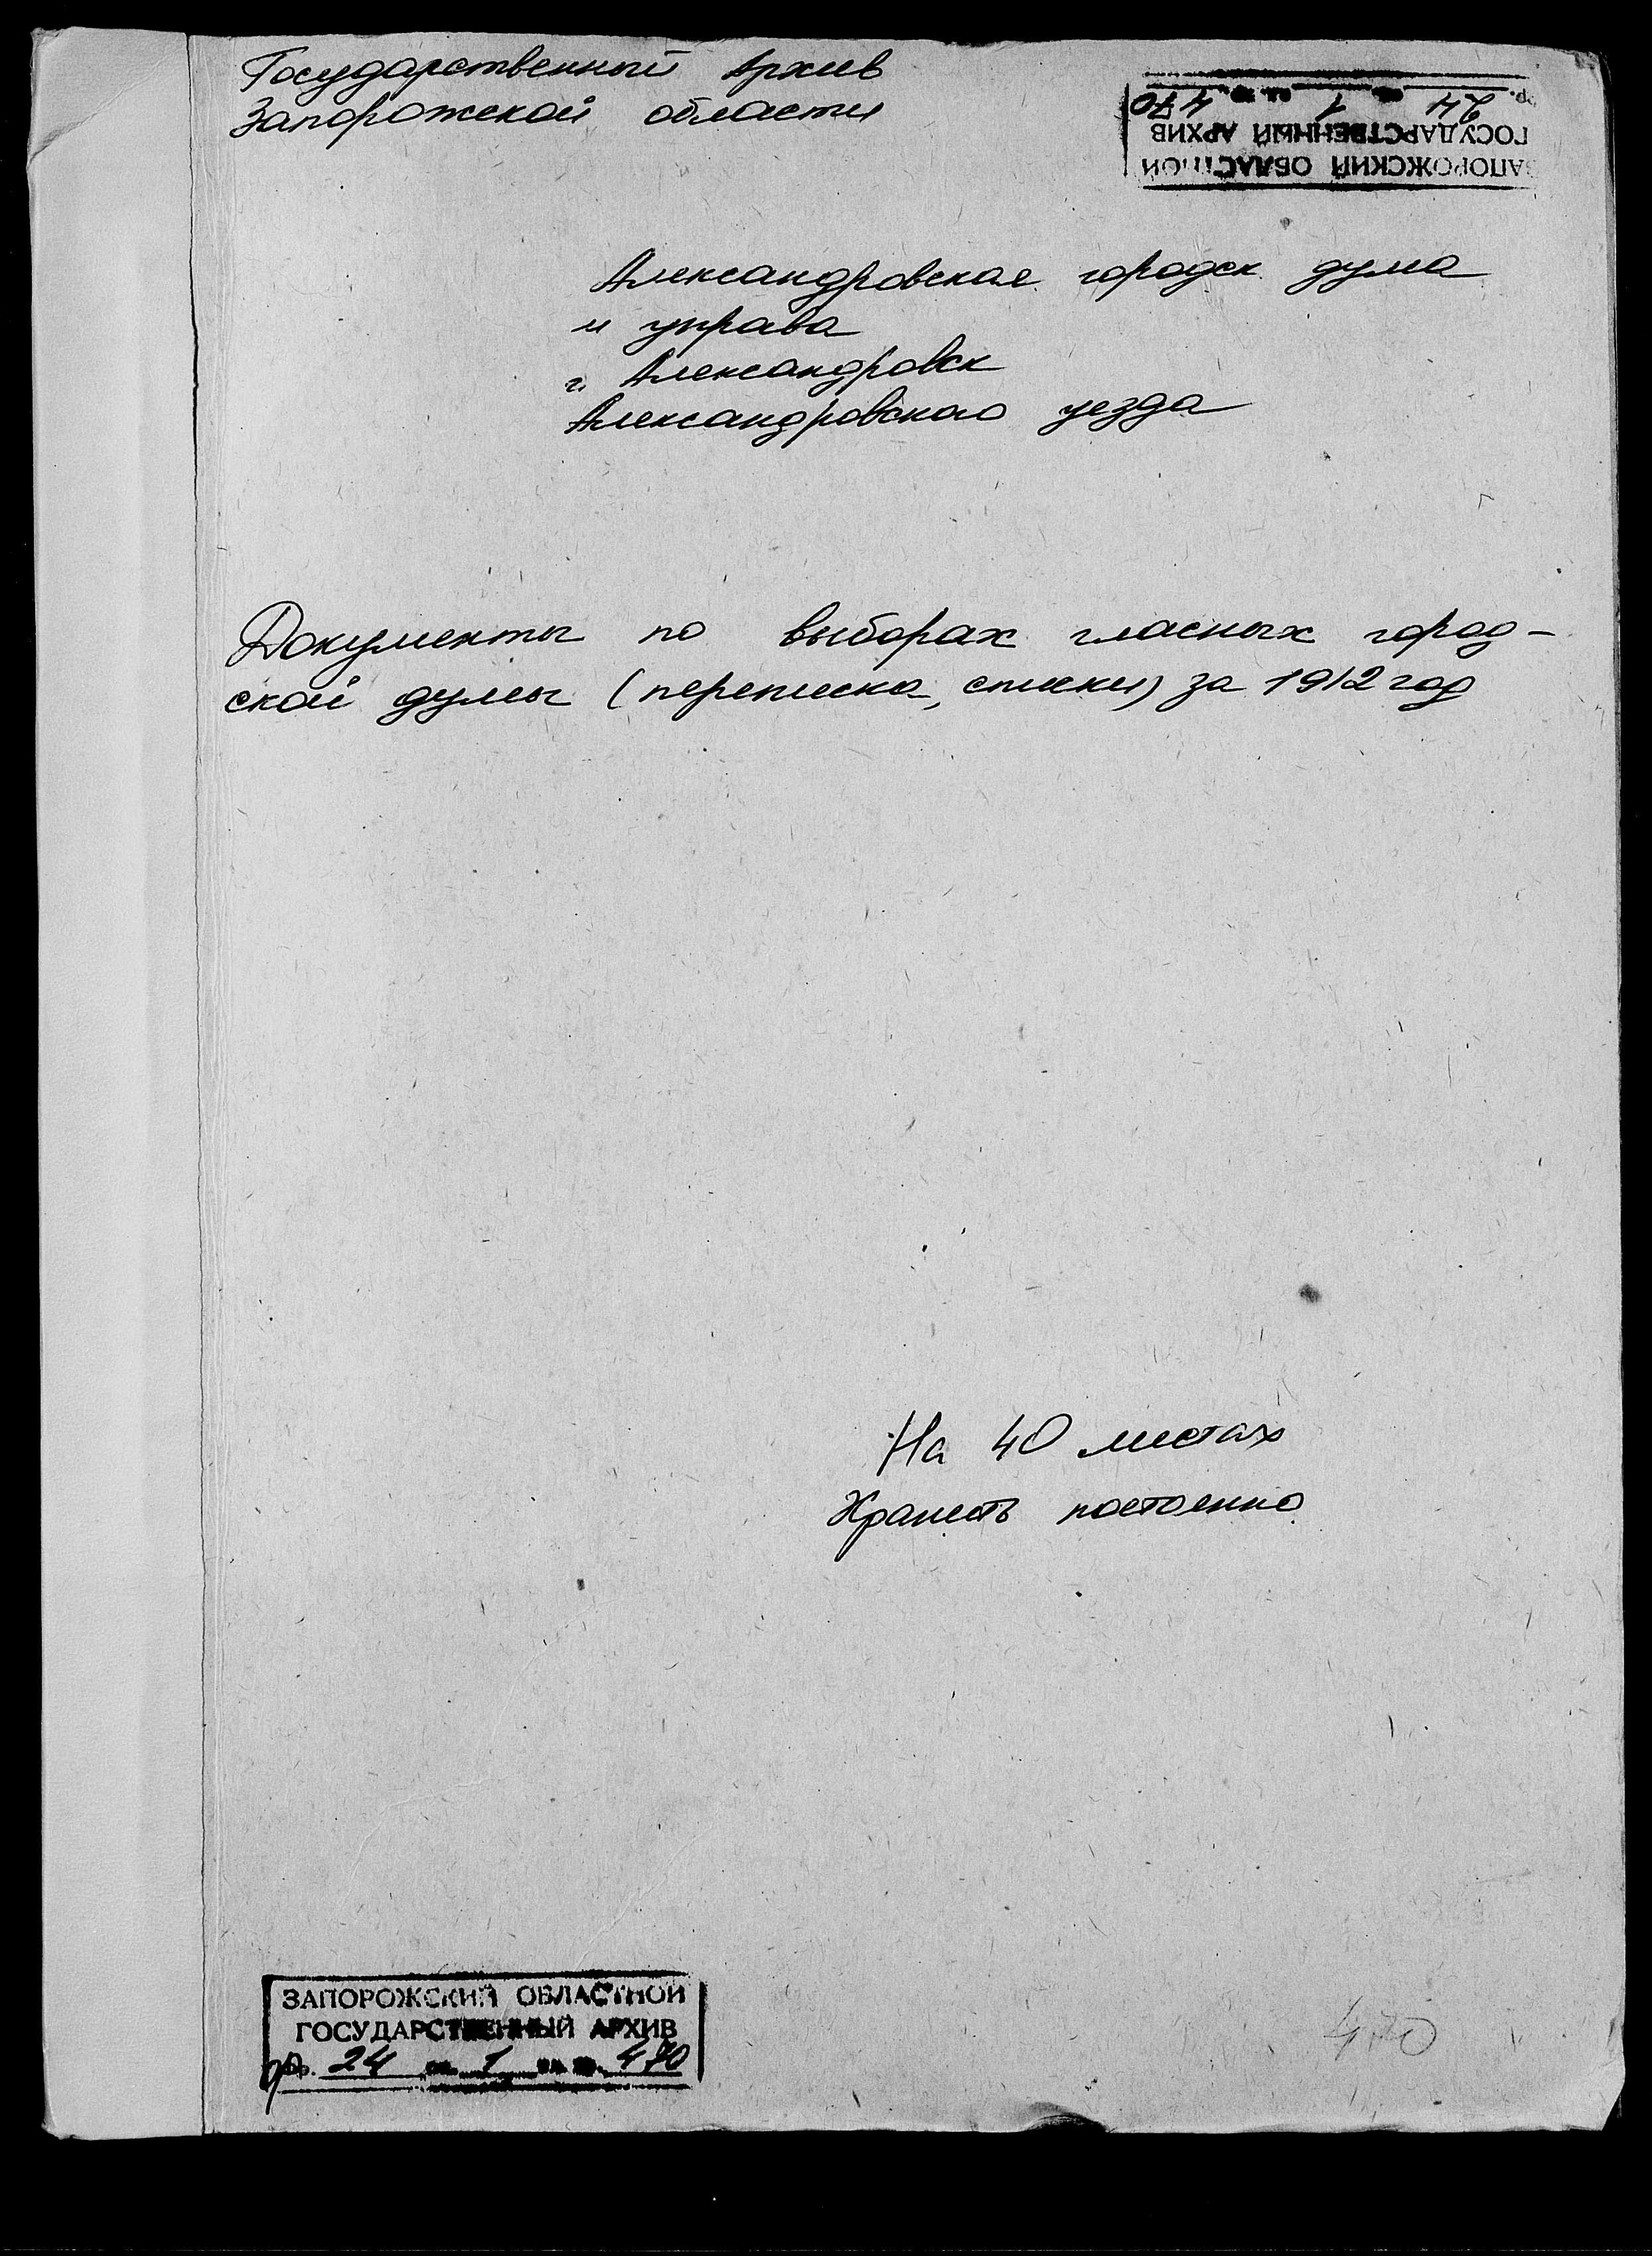 Государственный Архив
Запорожской области
ЗАПОРОЖСКИЙ ОБЛАСТНОЙ
ГОСУДАРСТВЕННЫЙ АРХИВ
24 1 470
Александровская городск. дума
и управа
г. Александровск
Александровского уезда
Документы по выборах гласных город-
ской думы (переписка, списки) за 1912 год
На 40 листах
Хранить постоянно
ЗАПОРОЖСКИЙ ОБЛАСТНОЙ
ГОСУДАРСТВЕННЫЙ АРХИВ
ф. 24 оп. 1 ед. хр. 470
470